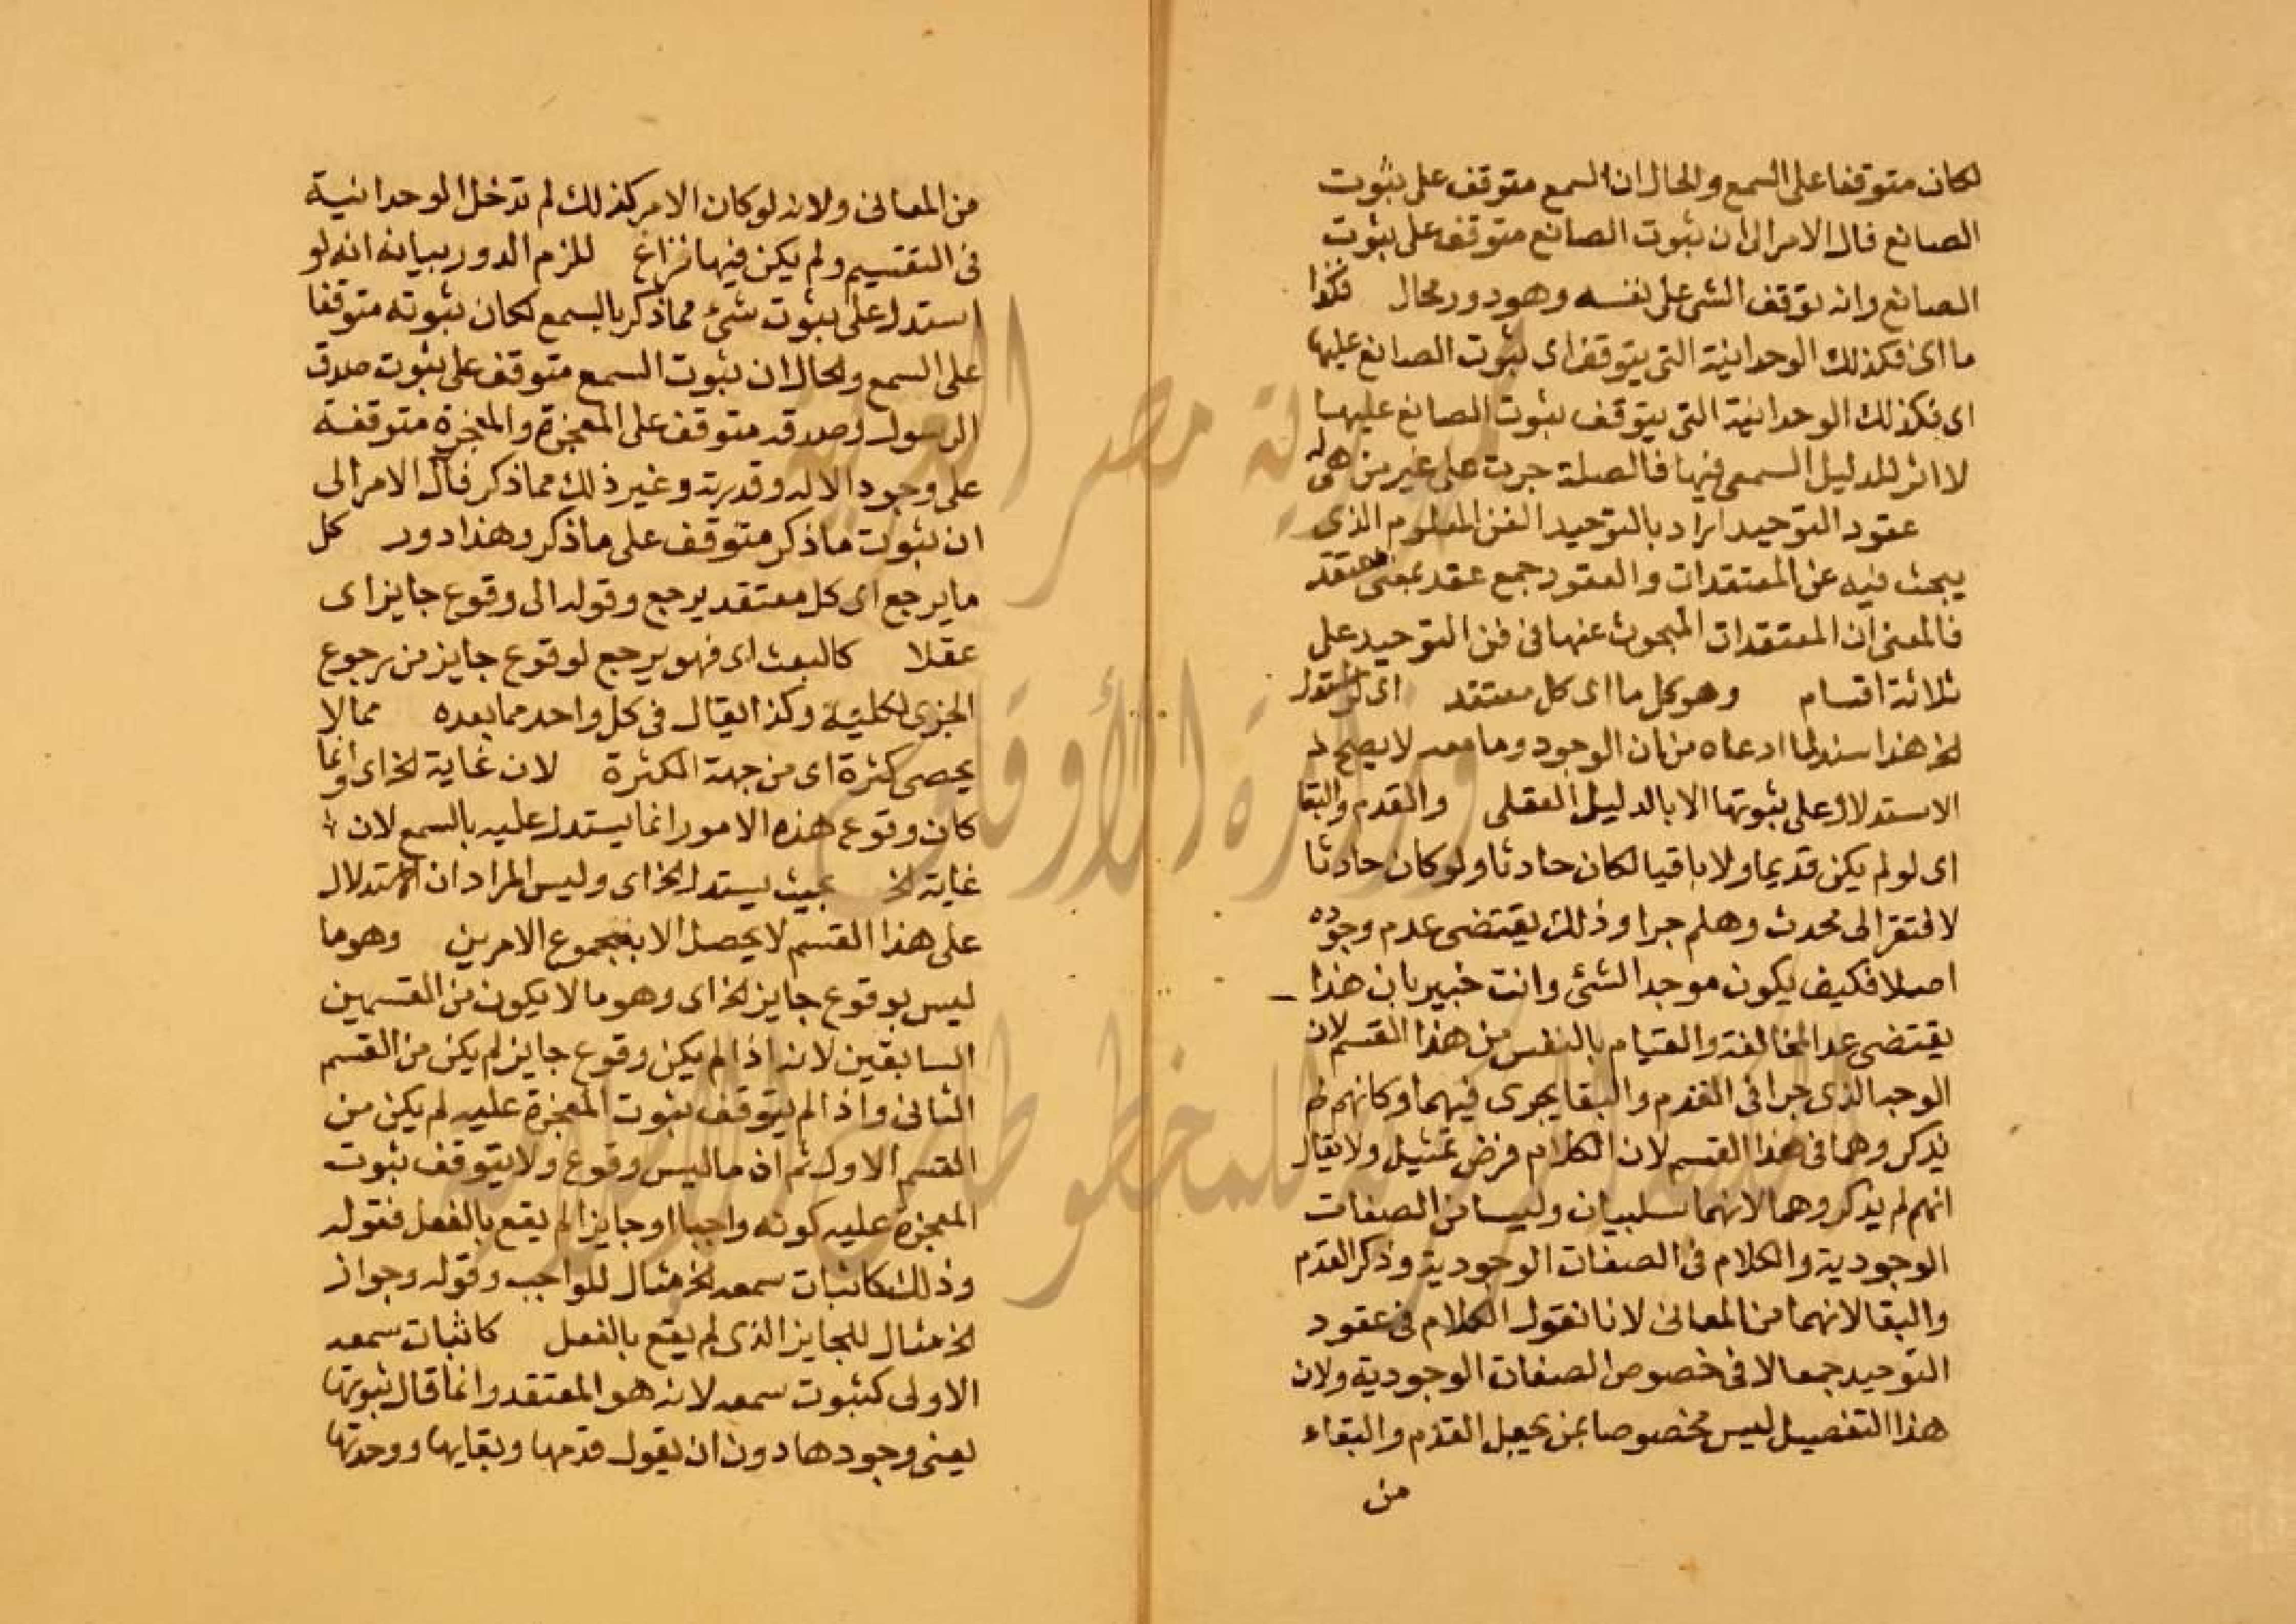 لكان متوقفا على السمع والحال ان السمع متوقف على ثبوت
الصانع فال الامر الى ان ثبوت الصانع متوقف على ثبوت
الصانع وانه توقف الشى على نفسه وهو دور محال فكذا
ما اى فكذلك الوحدانية التى يتوقف اى ثبوت الصانع عليها
اى فكذلك الوحدانية التى يتوقف ثبوت الصانع عليها
لا اثر للدليل السمعى فيها فالصلة جرت على غير من هى له
عقود التوحيد اراد بالتوحيد الفن المعلوم الذى
يبحث فيه عن المعتقدات والعقود جمع عقد بمعنى معتقد
فالمعنى ان المعتقدات المبحوث عنها فى فن التوحيد على
ثلاثة اقسام وهو كل ما اى كل معتقد اى لو استدل
الخ هذا سند لما ادعاه من ان الوجود وما معه لا يصح له
الاستدلال على ثبوتها الا بالدليل العقلى والقدم والبقا
اى لو لم يكن قديما ولا باقيا لكان حادثا ولو كان حادثا
لافتقر الى محدث وهلم جرا وذلك يقتضى عدم وجوده
اصلا فكيف يكون موجد الشئ وانت خبير بان هذا
يقتضى عد المخالفة والقيام بالنفس من هذا القسم لان
الوجه الذى جرا فى القدم والبقا يجرى فيهما وكانهم لم
يذكروهما فى هذا القسم لان الكلام فرض تمثيل ولا يقال
انهم لم يذكروهما لانهما سلبيان وليسا من الصفات
الوجودية والكلام فى الصفات الوجودية وذكر القدم
والبقا لانهما من المعانى لانا نقول الكلام فى عقود
التوحيد جمعا لا فى خصوص الصفات الوجودية ولان
هذا التفصيل ليس مخصوصا بمن يجعل القدم والبقاء
من
من المعانى ولانه لو كان الامر كذلك لم تدخل الوحدانية
فى التقسيم ولم يكن فيها نزاع للزم الدور بيانه انه لو
استدل على ثبوت شئ مما ذكر بالسمع لكان ثبوته متوقفا
على السمع والحال ان ثبوت السمع متوقف على ثبوت صدق
الرسول وصدقه متوقف على المعجزة والمعجزة متوقفة
على وجود الاله وقدرته وغير ذلك مما ذكر فال الامر الى
ان ثبوت ما ذكر متوقف على ما ذكر وهذا دور كل
ما يرجع اى كل معتقد يرجع وقوله الى وقوع جايز اى
عقلا كالبعث اى فهو يرجع لوقوع جايز من رجوع
الجزى لكليه وكذا يقال فى كل واحد مما بعده مما لا
يحصى كثرة اى من جهة الكثرة لان غاية الخ اى وانما
كان وقوع هذه الامور انما يستدل عليه بالسمع لان
غاية الخ بحيث يستدل الخ اى وليس المراد ان الاستدلال
على هذا القسم لا يحصل الا بمجموع الامرين وهو ما
ليس بوقوع جايز الخ اى وهو ما لا يكون من القسمين
السابقين لانه اذا لم يكن وقوع جايز لم يكن من القسم
الثانى واذا لم يتوقف ثبوت المعجزة عليه لم يكن من
القسم الاول ثم ان ما ليس وقوع ولا يتوقف ثبوت
المعجزة عليه كونه واجبا او جايزا لم يقع بالفعل فقوله
وذلك كاثبات سمعه الخ مثال للواجب وقوله وجواز
الخ مثال للجايز الذى لم يقع بالفعل كاثبات سمعه
الاولى كثبوت سمعه لانه هو المعتقد وانما قال ثبوتها
يعنى وجودها دون ان يقول قدمها وبقايها ووحدتها